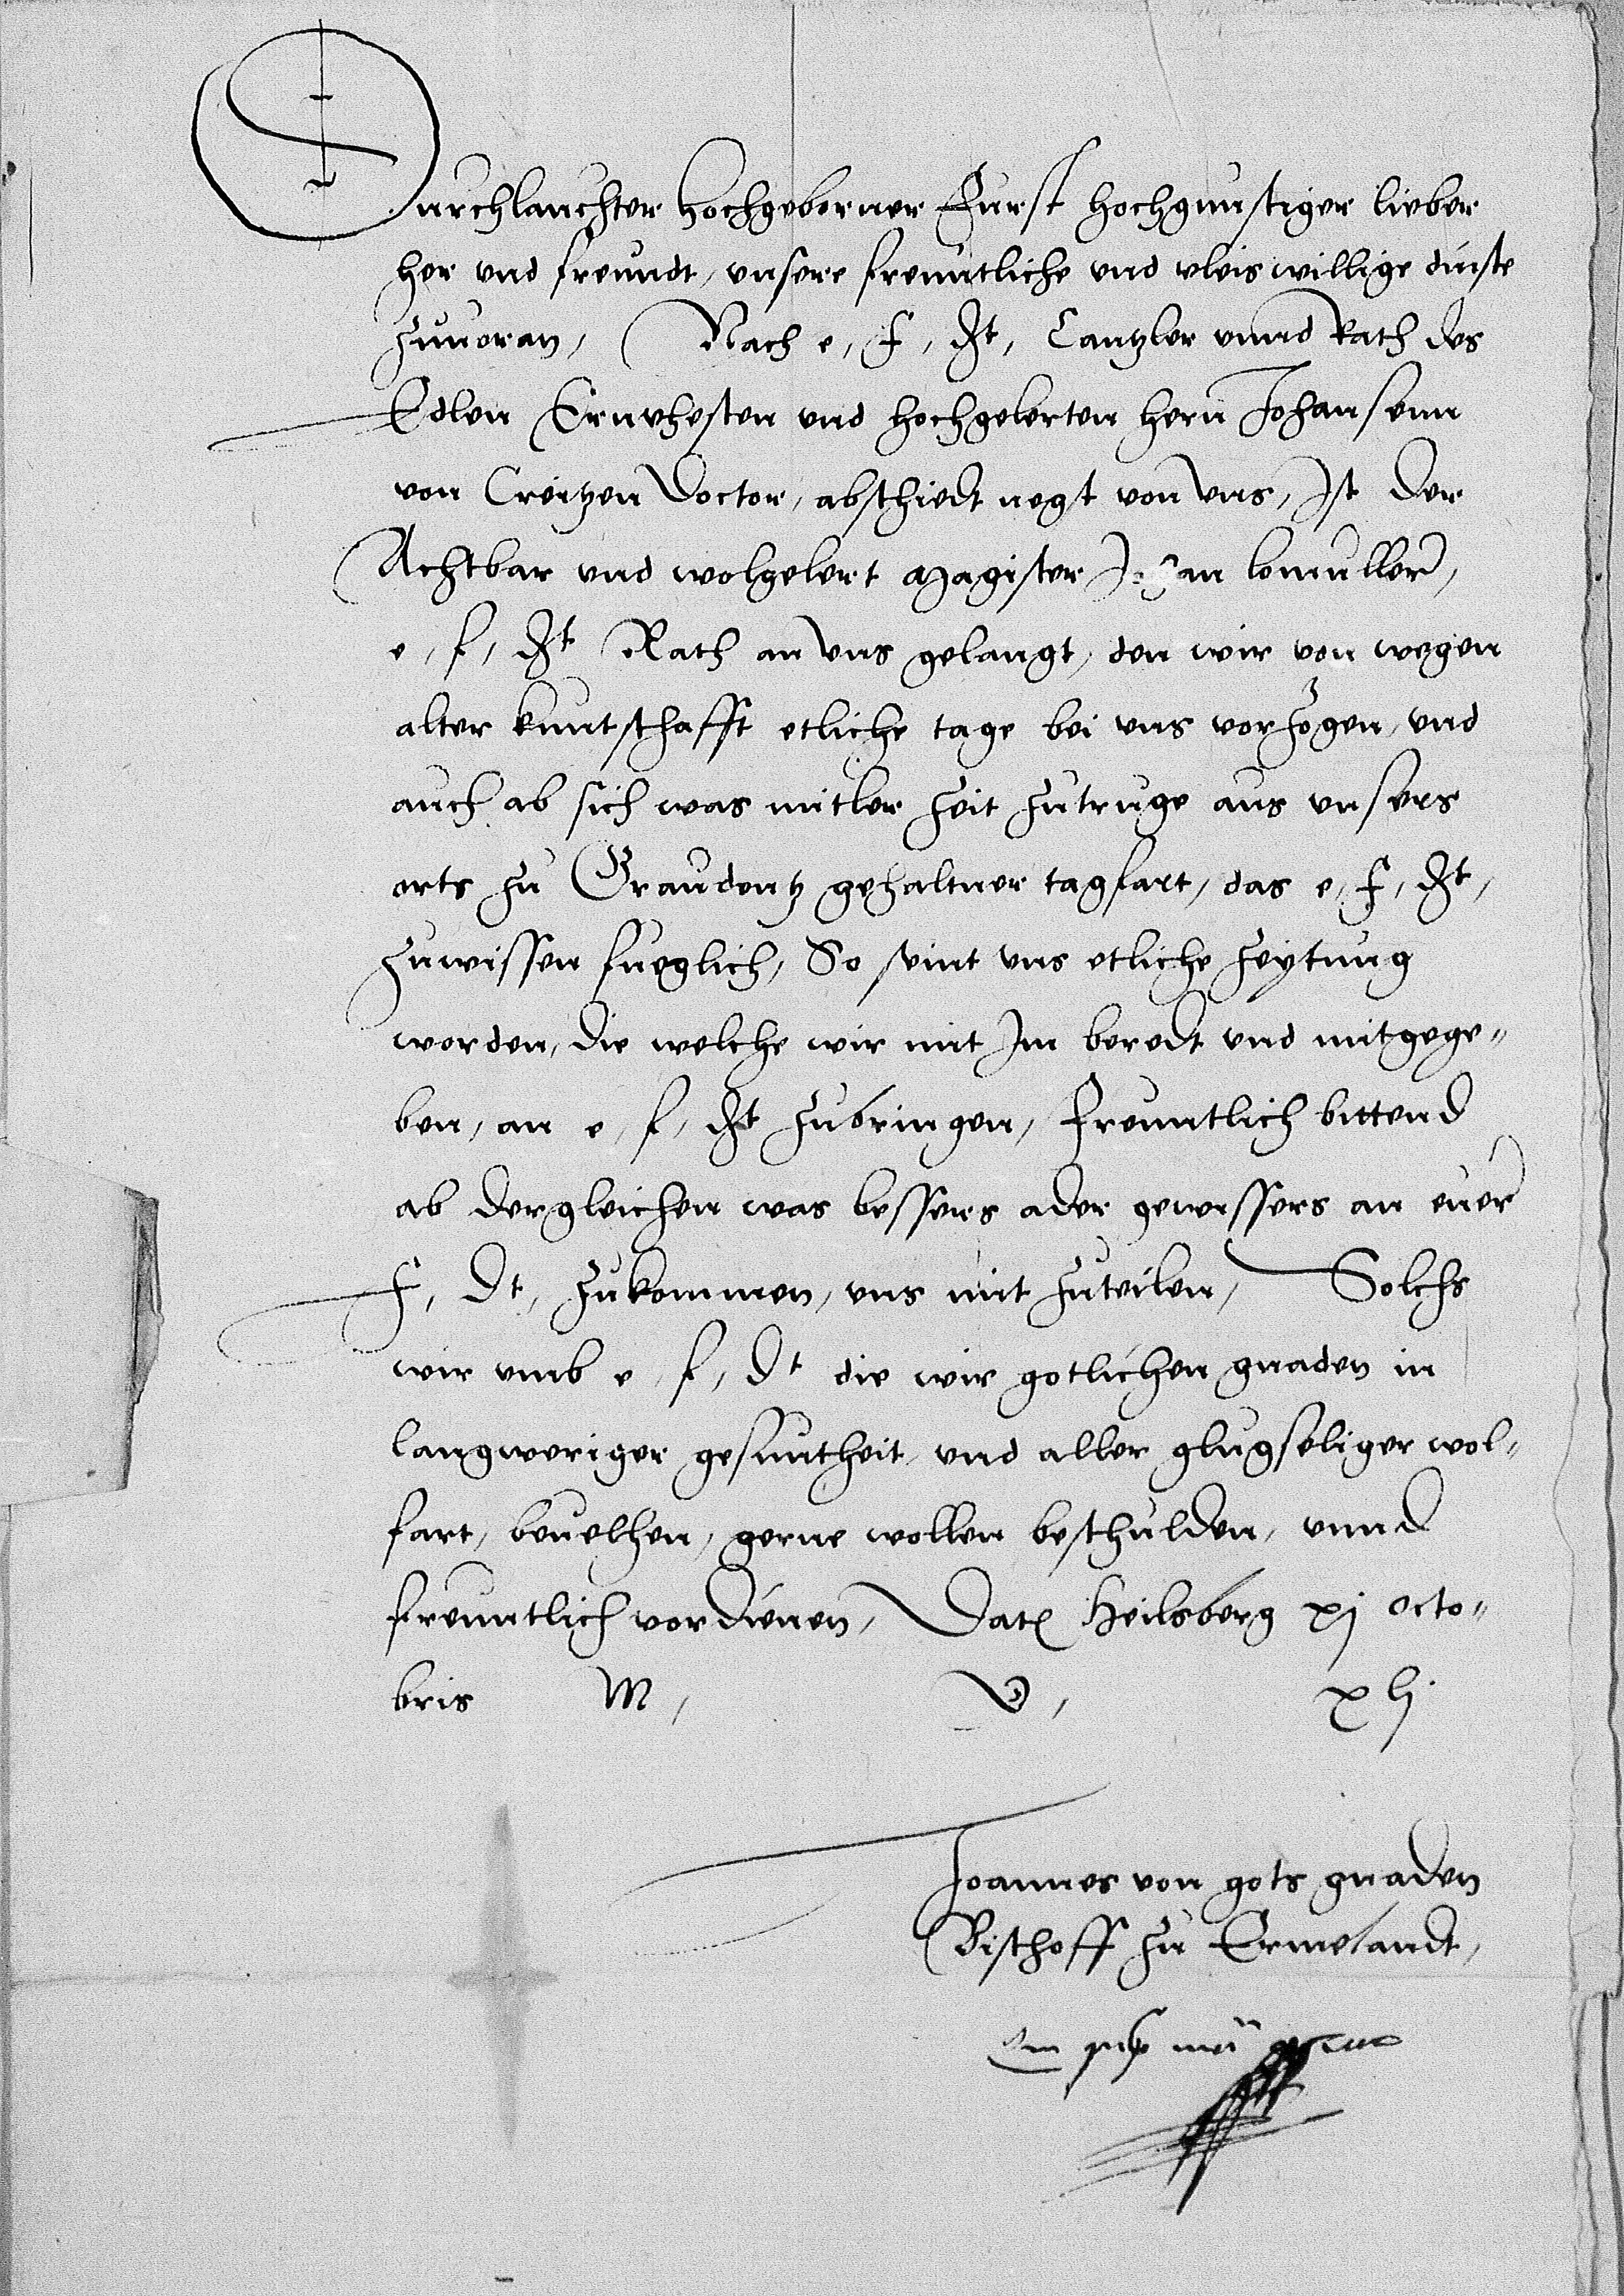 Durchlauchter hochgeborner Furst hochgunstiger lieber
her und freundt, unsere freuntliche und vleis willige dinste
zuuoran, Nach e, f, dt, Cantzler unnd Rath des
Edlen Ernvhesten und hochgelerten hern Johansenn
von Creitzen Doctor, abschiedt negst von uns, Ist der
Achtbar und wolgelert Magister Johan lomuller,
e, f, dt Rath an uns gelangt, den wir von wegen
alter kuntschafft etliche tage bei uns vorzogen, und
auch ab sich was mitler zeit zutruge aus unsers
orts zu Graudentz gehaltner tagfart, das e, f, dt,
zuwissen fueglich, So seint uns etliche zeytung
worden, die welche wir mit Im beredt und mitgege„
ben, an e, f, dt zubringen, freuntlich bittend
ab dergleichen was bessers ader gewissers an euer
f, dt, zukommen, uns mit zuteilen, Solchs
wir umb e, f, dt die wir gotlichen gnaden in
langweriger gesuntheit, und aller glugseliger wol„
fart, beuelhen, gerne wollen beschulden, unnd
freuntlich vordienen, Dat Heilsberg xj octo„
bris M, D, xlj
Joannes von gots gnaden
Bischoff zu Ermelandt,